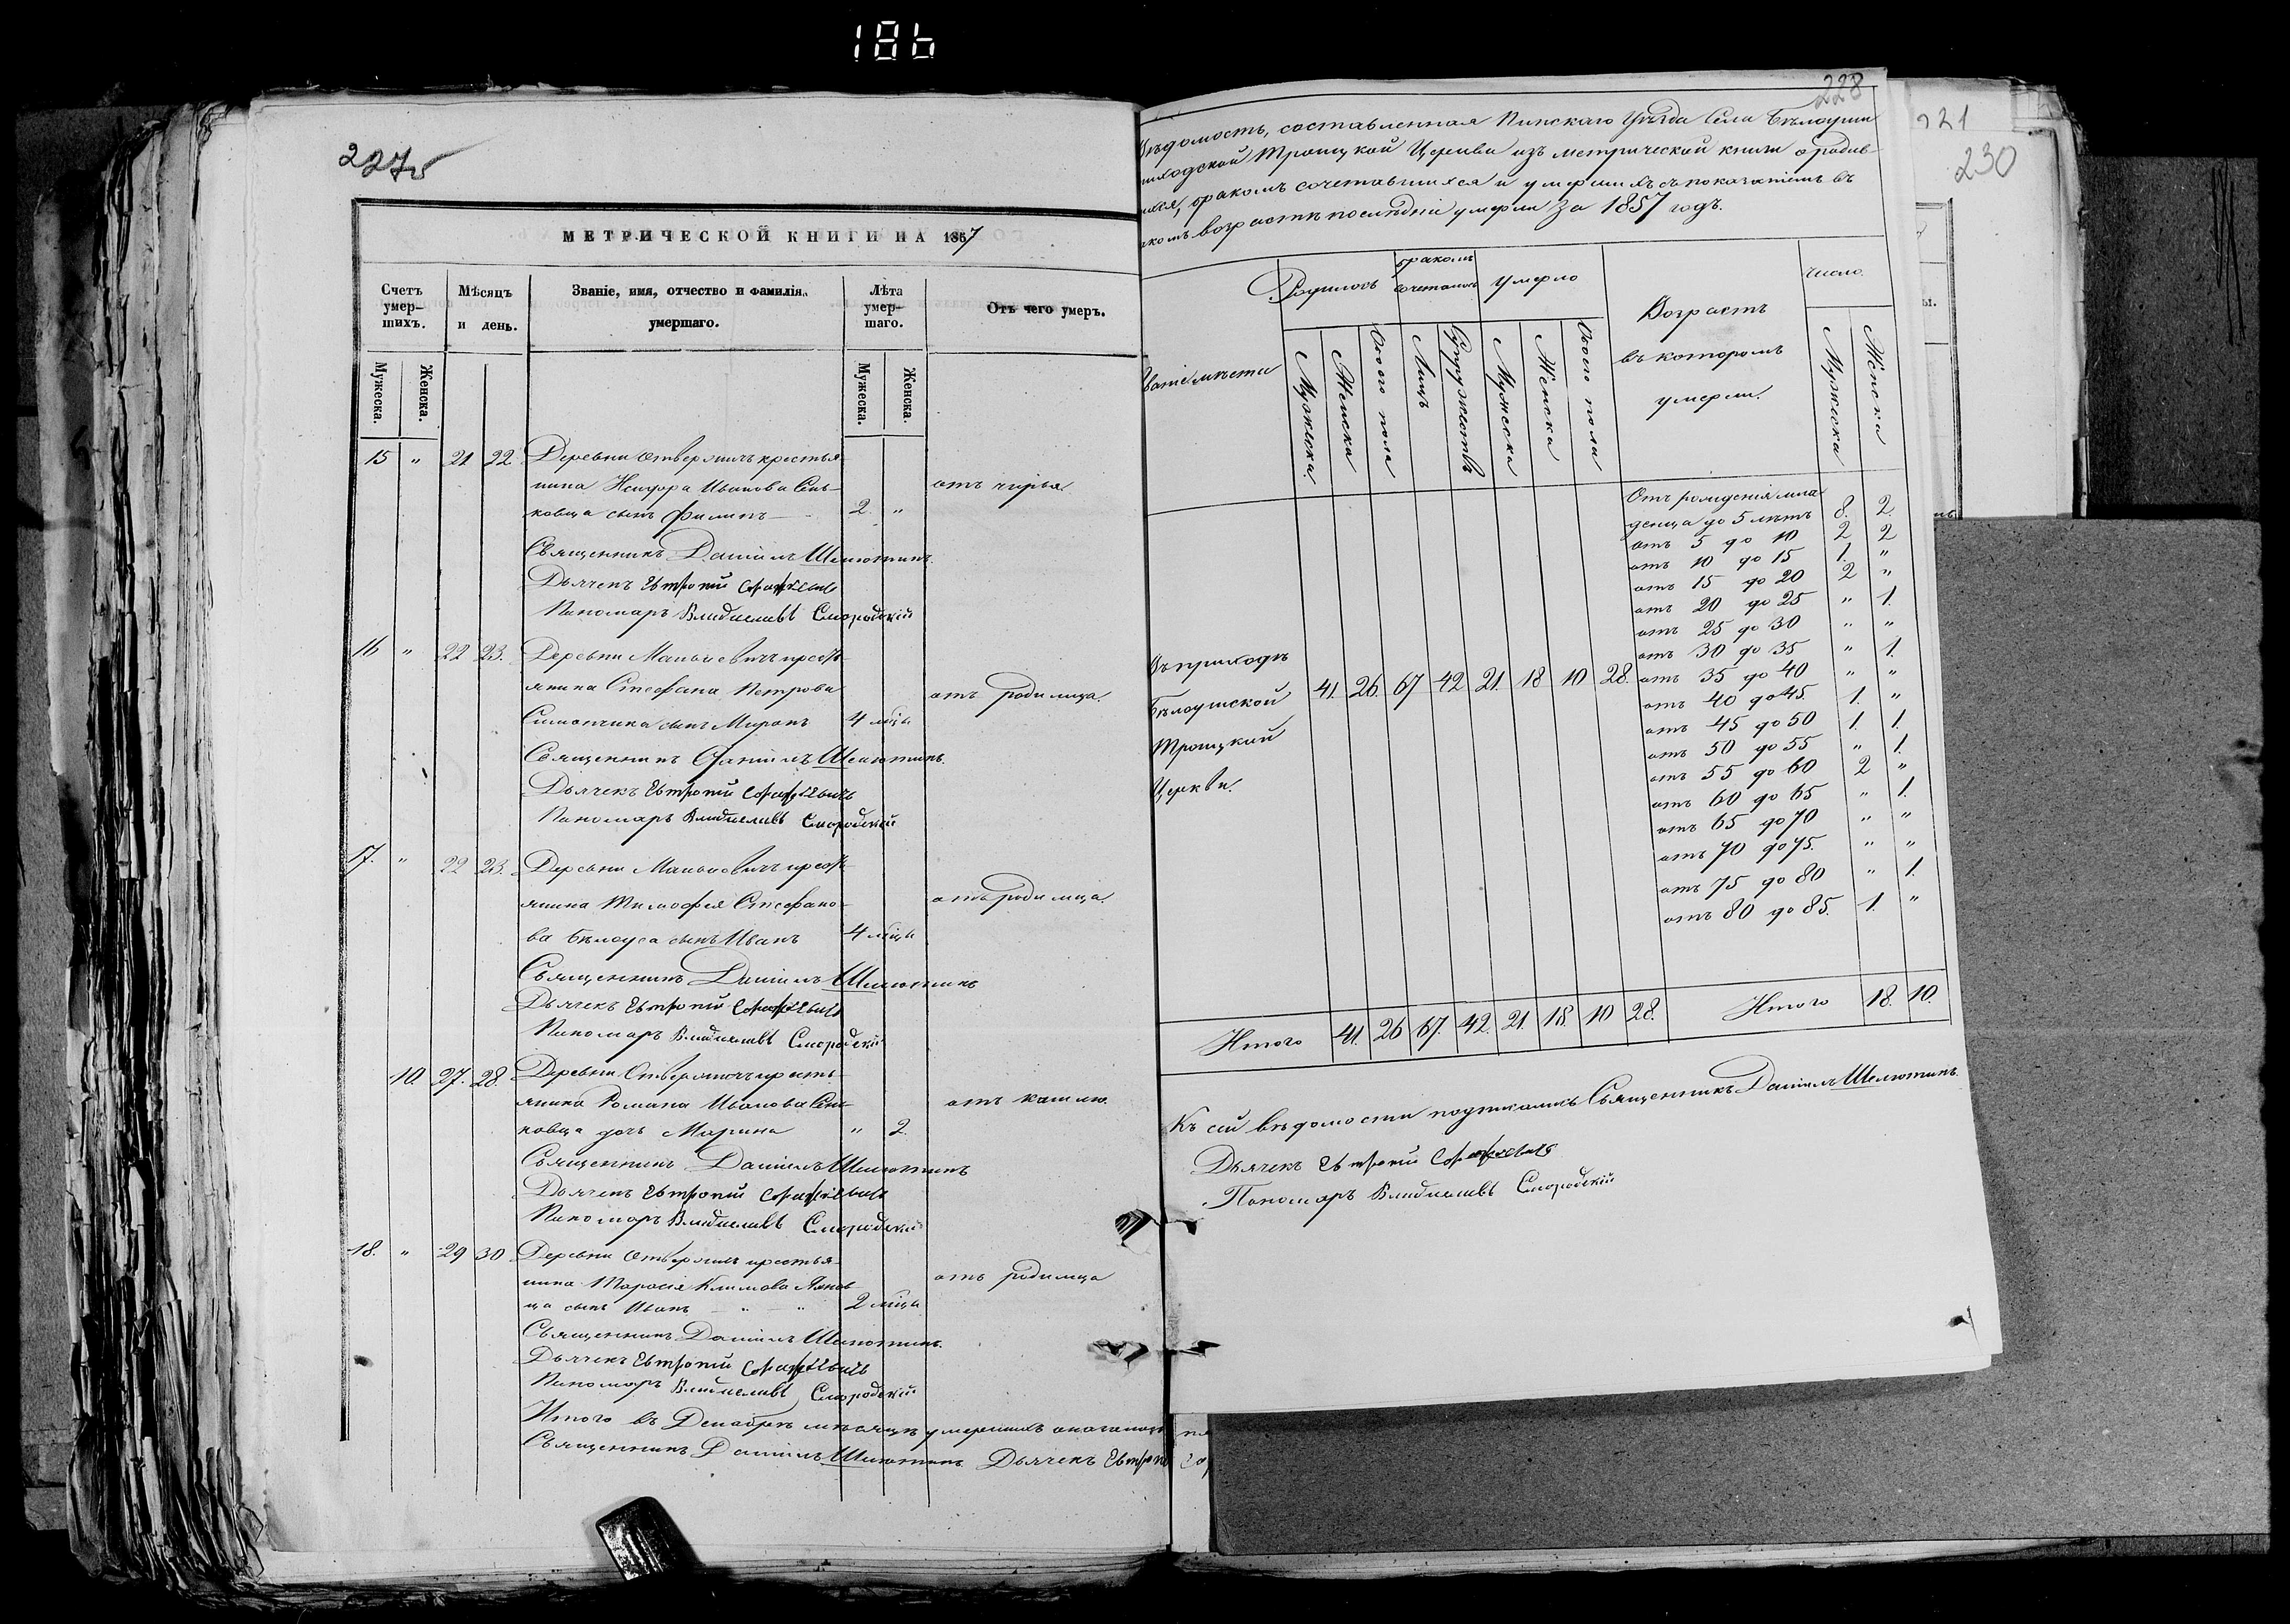 186
227б
МЕТРИЧЕСКОЙ КНИГИ НА 1857
Счетъ умер-шихъ.
Мѣсяцъ и день.
Званіе, имя, отчество и фамилія умершаго.
Лѣта умер-шаго.
Отъ чего умеръ.
Мужеска.
Женска.
Мужеска.
Женска.
15 " 21 22 Деревни Отвержичъ крестья-
нина Исидора Иванова Сень-
отъ чирья
ковца сынъ Филипъ 2. "
Священникъ Даніилъ Шелютинъ.
Дьячекъ Евтропій
Пономаръ Смородскій
16 " 22 23. Деревни Маньковичъ крестъ-
янина Стефана Петрова
отъ родимца.
сынъ Миронъ 4 мѣца
Священникъ Даніилъ Шелютинъ.
Дьячекъ Евтропій
Пономаръ Смородскій
17. " 22 23. Деревни Маньковичъ крестъ-
янина Тимофея Стефано-
отъ родимца.
ва Бѣлоуса сынъ Иванъ 4 мѣца
Священникъ Даніилъ Шелютинъ
Дьячекъ Евтропій
Пономаръ Смородскій
10. 27. 28. Деревни Отвержичъ кресть-
янина Романа Иванова Сень-
отъ кашлю.
ковца дочь Марина " 2.
Священникъ Даніилъ Шелютинъ
Дьячекъ Евтропій
Пономаръ Смородскій
18. " 29 30 Деревни Отвержичъ крестья-
нина Тарасія Климова
отъ родимца
ца сынъ Иванъ " " 2 мѣца
Священникъ Даніилъ Шелютинъ.
Дьячекъ Евтропій
Пономаръ Смородскій
Итого въ Декабрѣ мѣсяцѣ умершихъ
Священникъ Даніилъ Шелютинъ Дьячекъ
228
221
230
Вѣдомость, составленная Пинскаго Уѣзда Села Бѣлоуши
приходской Троицкой Церкви изъ метрической книги о родив-
шихся, бракомъ сочетавшихся и умершихъ съ показаніемъ въ
какомъ возрастѣ послѣдніе умерли за 1857 годъ.
Званіе мѣста
Родилось
бракомъ сочеталось
умерло
Возрастъ въ которомъ умерли.
число.
Мужеска
Женска
Обоего пола
Лицъ
Супружествъ
Мужеска
Женска
Обоего пола
Мужеска
Женска
Отъ рожденія мла-
денца до 5 лѣтъ 8. 2.
отъ 5 до 10 2 2
отъ 10 до 15 1. "
отъ 15 до 20 2 "
отъ 20 до 25 " 1.
отъ 25 до 30 " "
отъ 30 до 35 " 1.
Въ приходѣ
Бѣлоушской
Троицкой
Церкви.
41. 26. 67 42 21. 18 10 28.
отъ 35 до 40 " "
отъ 40 до 45. 1. "
отъ 45 до 50 1. 1.
отъ 50 до 55 " 1.
отъ 55 до 60 2 "
отъ 60 до 65 " 1.
отъ 65 до 70 " "
отъ 70 до 75. " "
отъ 75 до 80 " 1.
отъ 80 до 85. 1. "
Итого 41. 26 67. 42. 21. 18. 10 28. Итого 18. 10.
Къ сей вѣдомости подписались Священникъ Даніилъ Шелютинъ.
Дьячекъ Евтропій
Пономаръ Смородскій